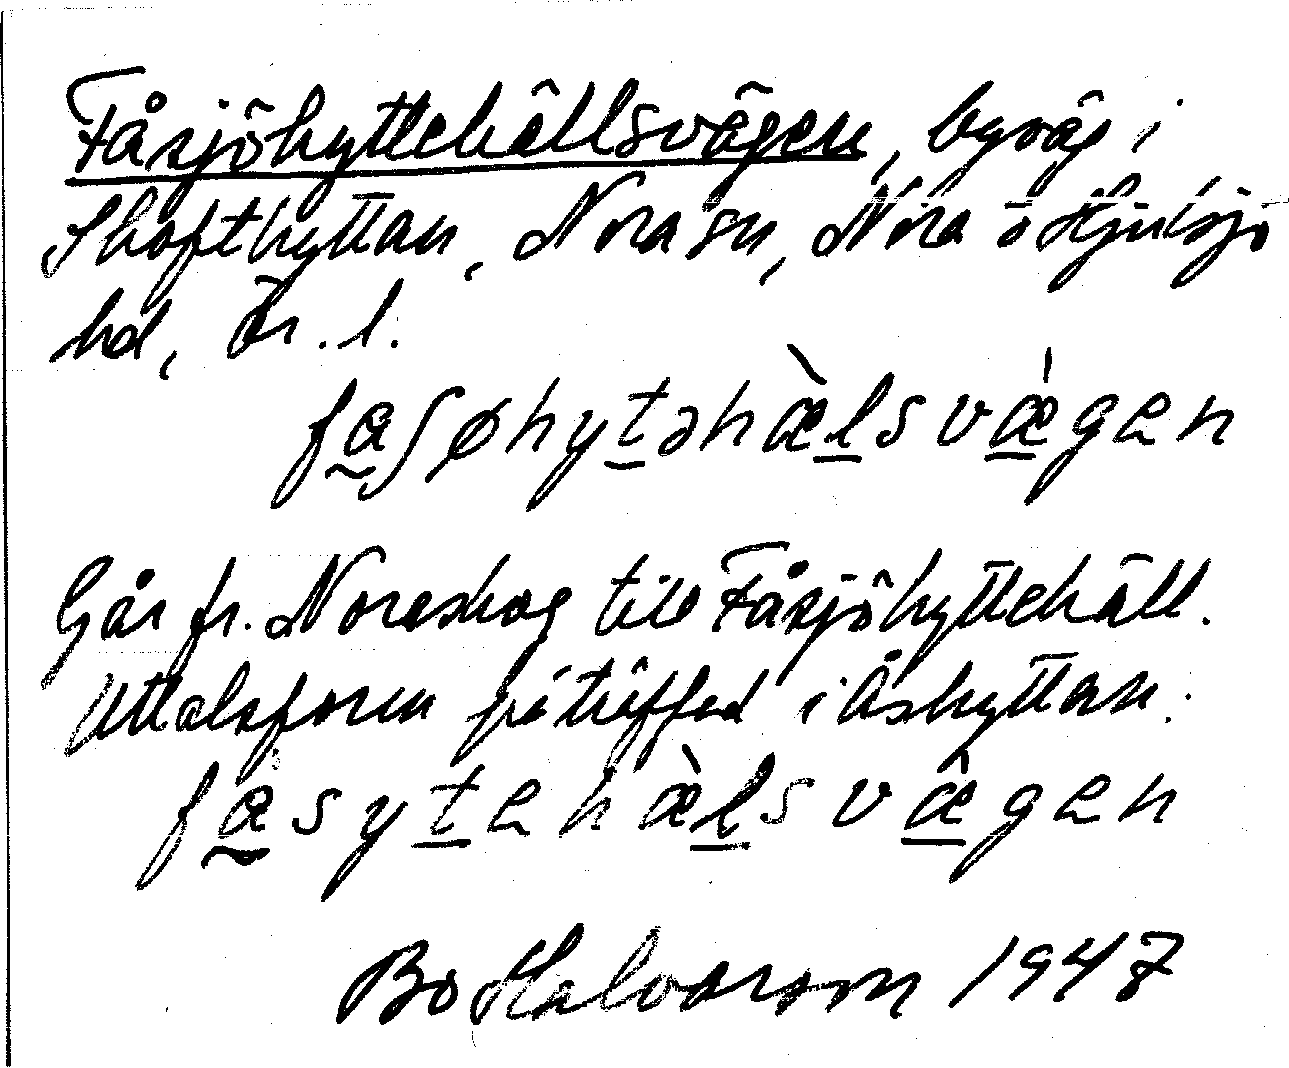 Fåsjöhyttehällsvägen, byväg i
Skofthyttan, Nora sn, Nora o Hjulsjö
hd, Ör. l.
fa̰ʃøhyt̲əhæ̀l̲svæ̲̍gen
Går fr. Noraskog till Fåsjöhyttehäll.
Uttalsform påträffad i Åshyttan:
fa̰syt̲ehæ̀l̲svæ̲̂gen
Bo Halvarson 1947